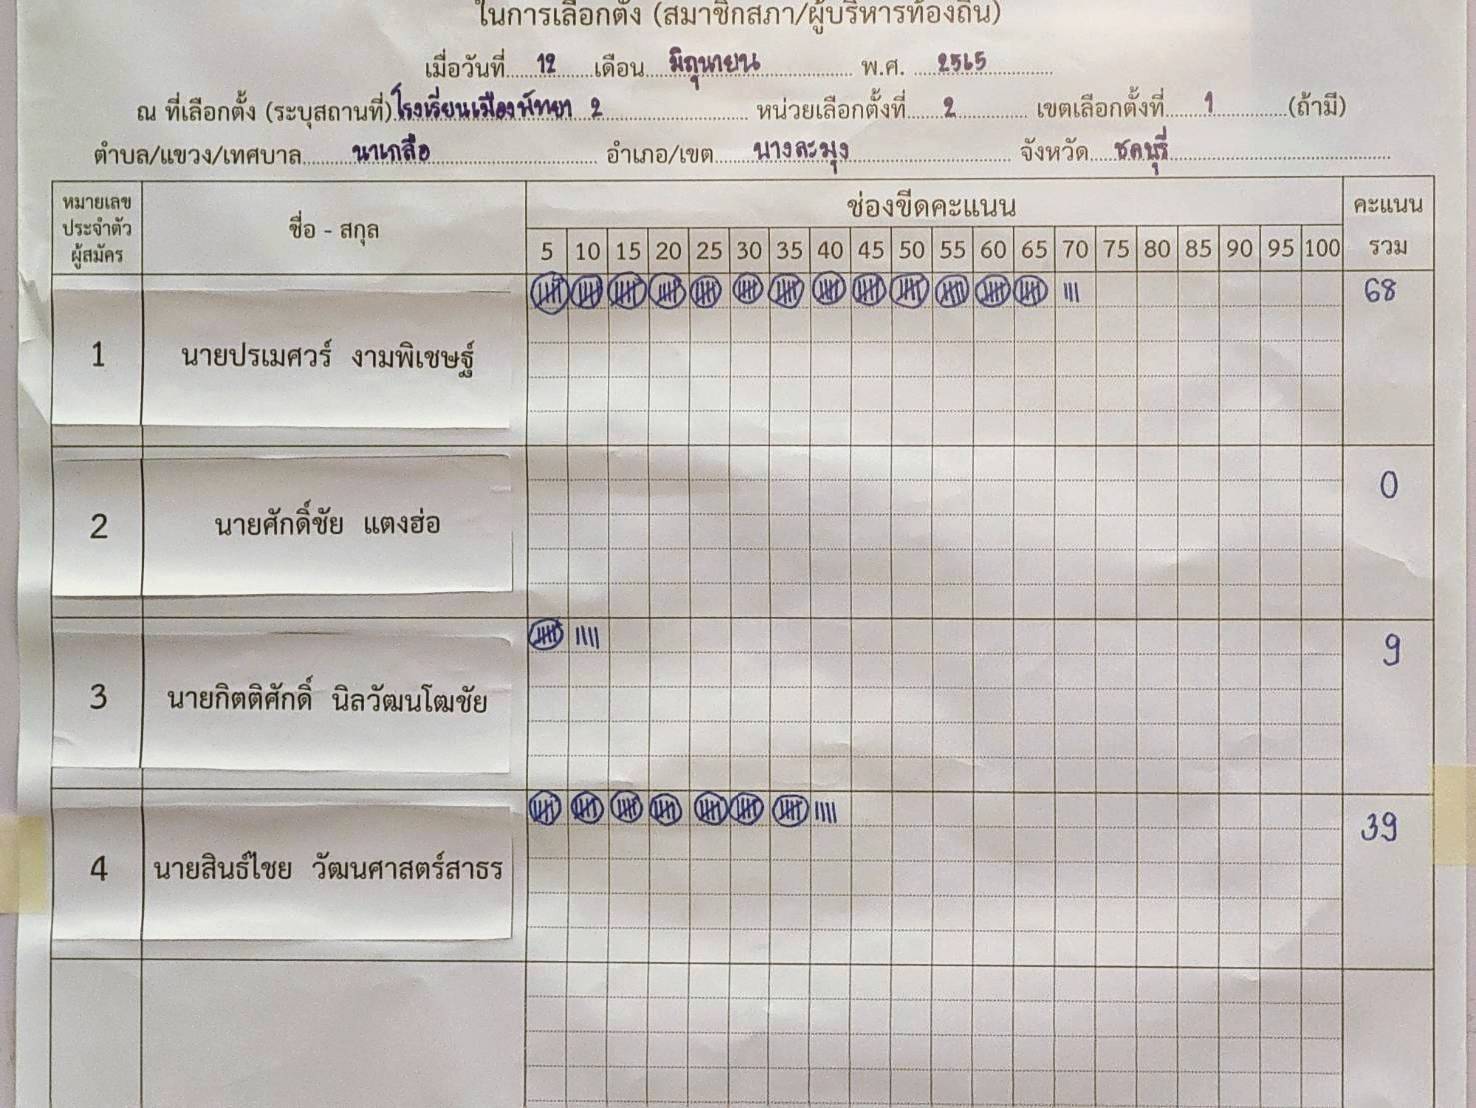 ในการเลือกตั้ง (สมาชิกสภา/ผู้บริหารท้องถิ่น)
เมื่อวันที่ 12 เดือน มิถุนายน พ.ศ. 2565
ณ ที่เลือกตั้ง (ระบุสถานที่) โรงเรียนเมืองพัทยา 2 หน่วยเลือกตั้งที่ 2 เขตเลือกตั้งที่ 1 (ถ้ามี)
ตำบล/แขวง/เทศบาล นาเกลือ อำเภอ/เขต บางละมุง จังหวัด ชลบุรี
หมายเลข
ประจำตัว
ผู้สมัคร
ชื่อ - สกุล
ช่องขีดคะแนน
5 10 15 20 25 30 35 40 45 50 55 60 65 70 75 80 85 90 95 100
คะแนน
รวม
1 นายปรเมศวร์ งามพิเชษฐ์ 68
2 นายศักดิ์ชัย แตงฮ่อ 0
3 นายกิตติศักดิ์ นิลวัฒนโฒชัย 9
4 นายสินธ์ไชย วัฒนศาสตร์สาธร 39